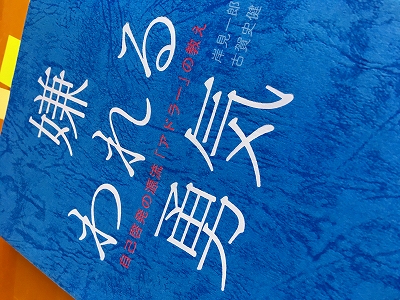 嫌
われる
自己啓発の源流「アドラー」の教え
勇気
岸見一郎
古賀史健